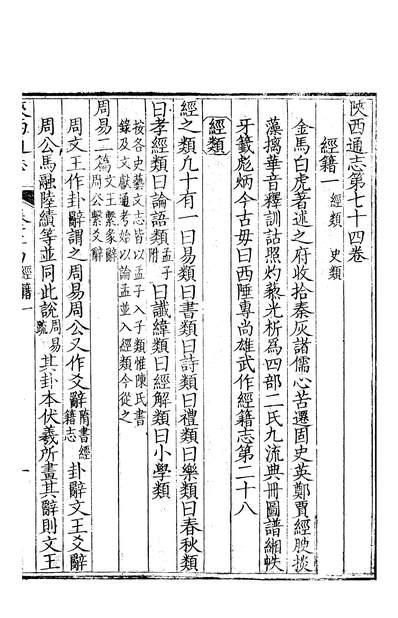 陜西通志第七十四卷
經籍一 經類 史類
金馬白虎著述之府收拾秦灰諸儒心苦遷固史英鄭賈經腴掞
藻摛華音釋訓詁照灼藜光析為四部二氏九流典冊圖譜緗帙
牙籤彪炳今古毋曰西陲專尚雄武作經籍志第二十八
經類
經之類凡十有一曰易類曰書類曰詩類曰禮類曰樂類曰春秋類
曰孝經類曰論語類孟子附曰讖緯類曰經解類曰小學類
按各史藝文志皆以孟子入子類惟陳氏書
錄及文獻通考始以論孟並入經類今從之
周易二篇文王繫彖辭周公繫爻辭
周文王作卦辭謂之周易周公又作爻辭隋書經籍志卦辭文王爻辭
周公馬融陸績等並同此說周易疏其卦本伏羲所畫其辭則文王
經籍一